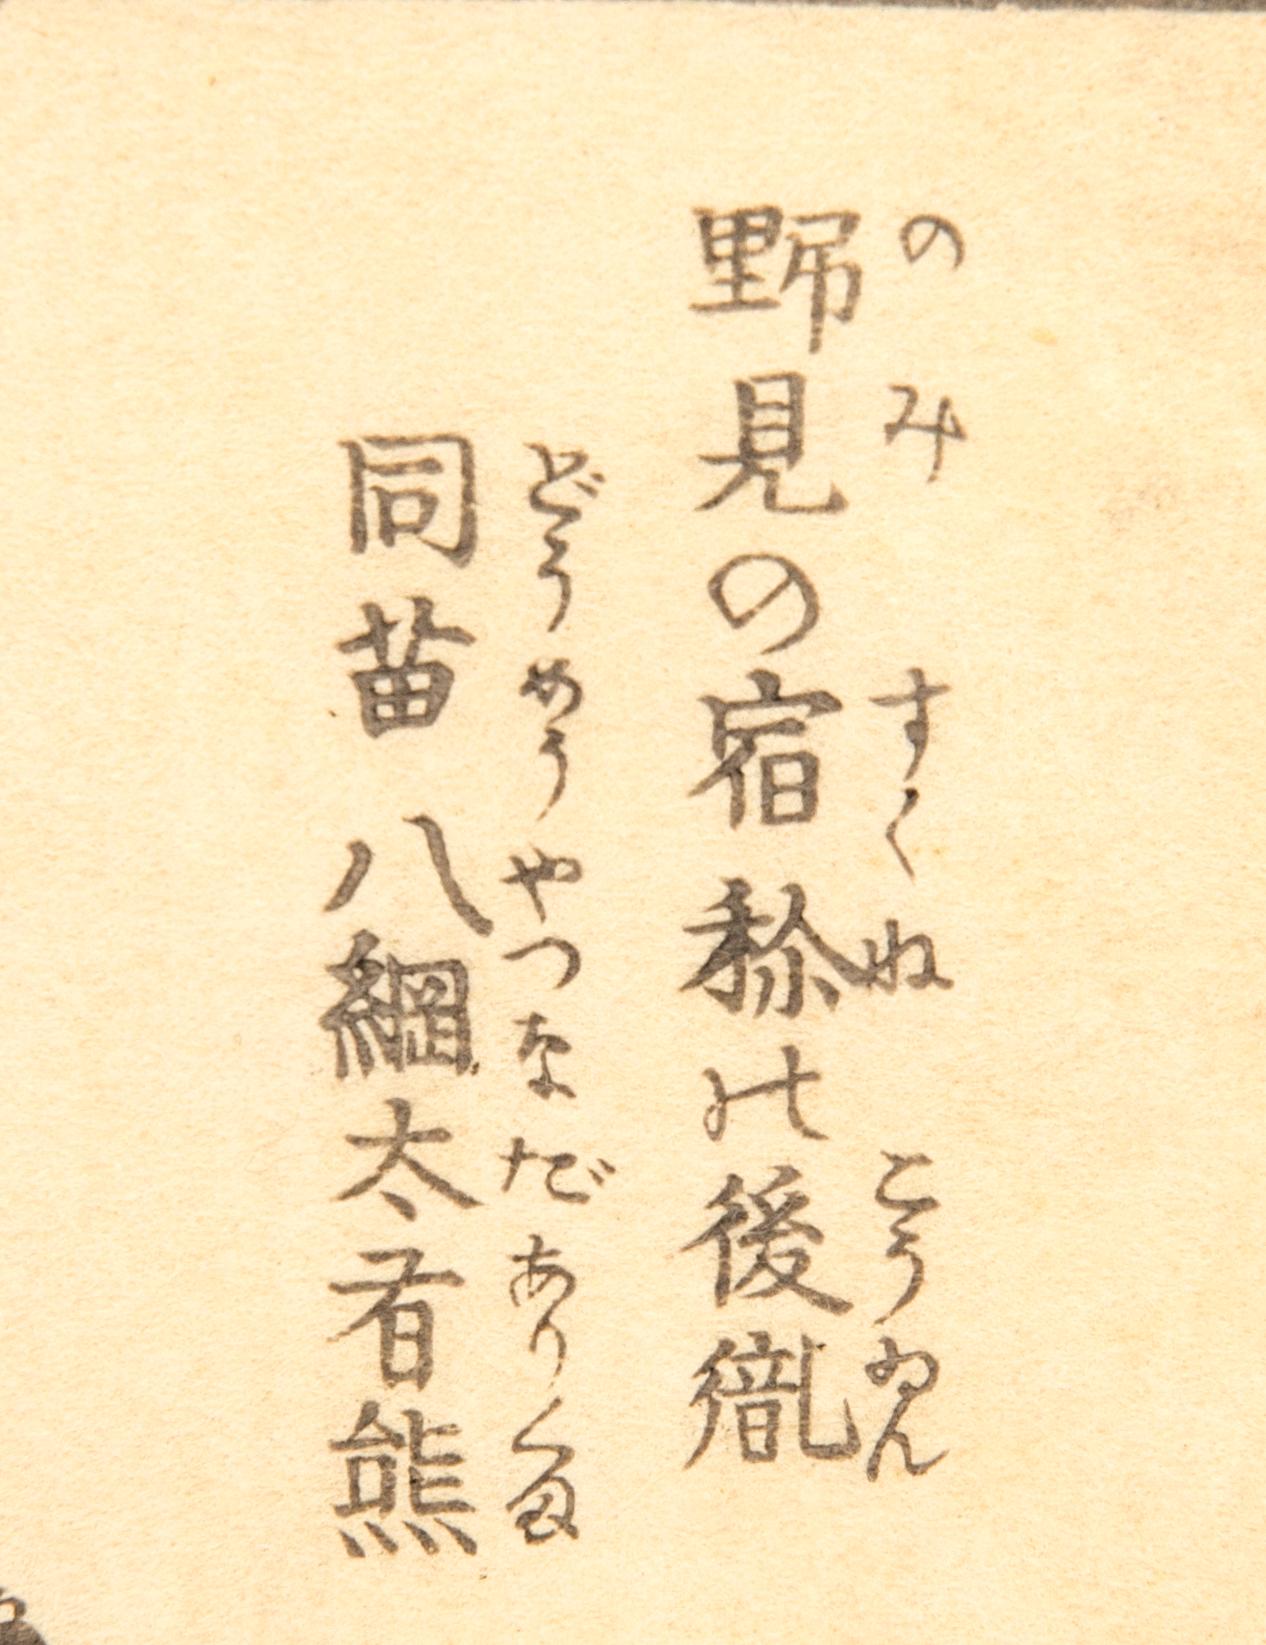 のみ すくね こうゐん
野見の宿祢の後胤
どうめう やつなだ ありくま
同苗 八綱太有熊